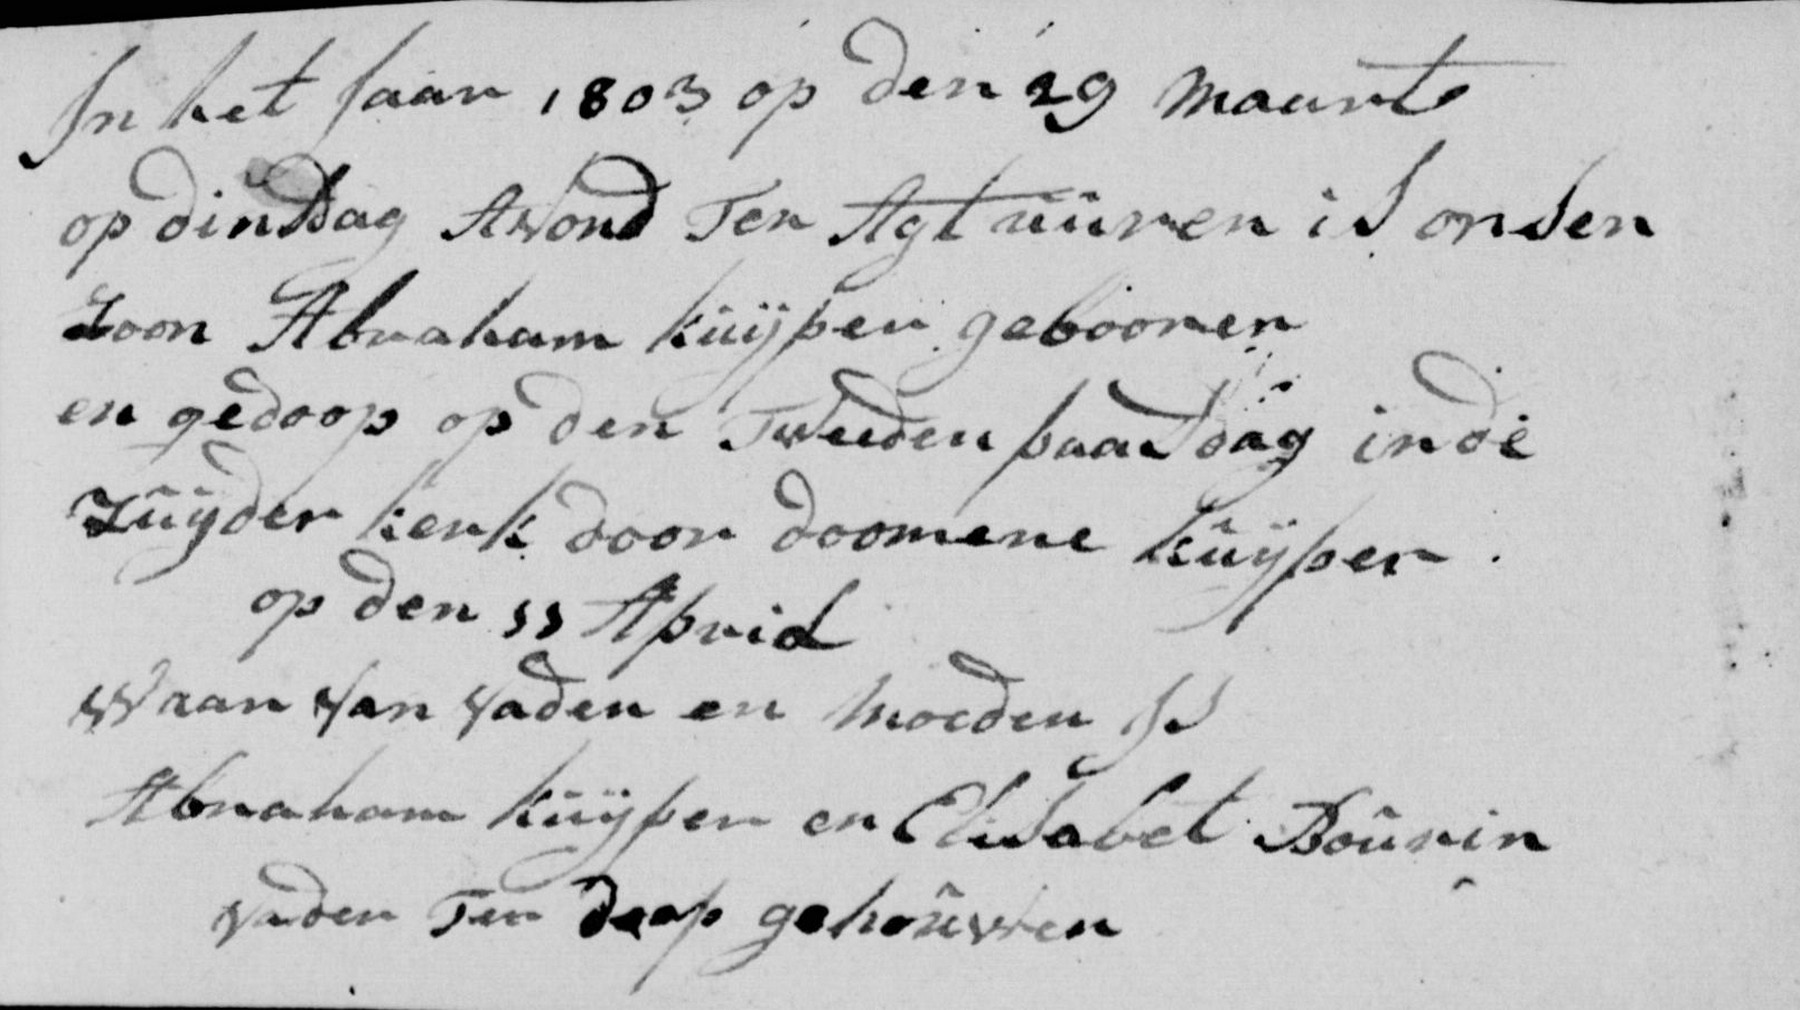 In het Jaar 1803 op den 29 Maart
op dinsdag Avond Ter Agt uüren is onsen
Zoon Abraham Küÿper gebooren
en gedoop op den Tweeden paasdag in de
Züÿder kerk door doomene Küÿper.
op den 11 April
Waar van vader en Moeder Is
Abraham Küÿper en Elisabet Boûrin
vader Ter doop gehoûwen